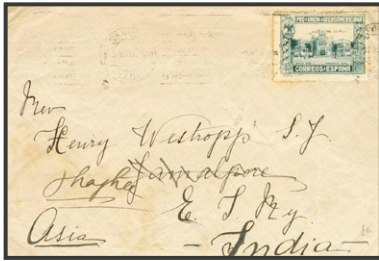 PRO UNION IBEROAMERICANA
CORREOS ESPAÑA
Rev
Henry Westropp S. J.
Jamalpore
E I Ry.
Asia
- India -